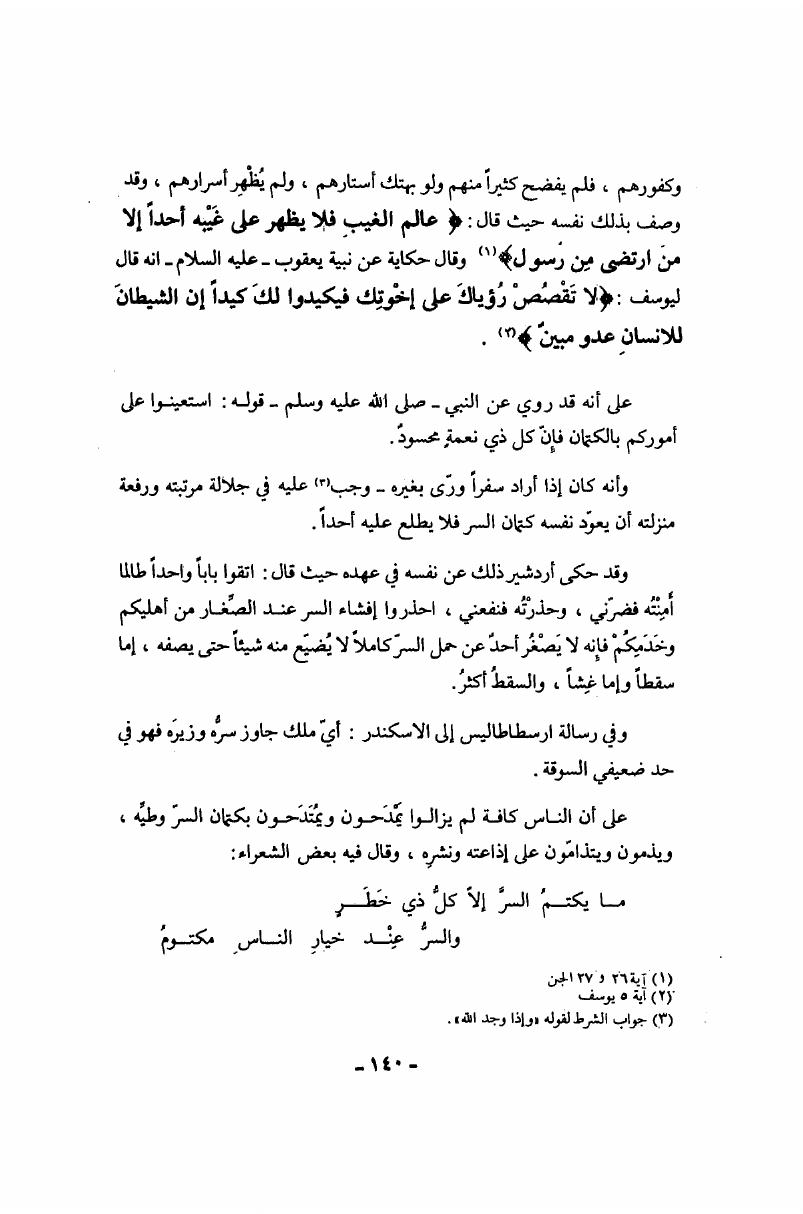 وكفورهم ، فلم يفضح كثيراً منهم ولو بهتك أستارهم ، ولم يُظْهِر أسرارهم ، وقد
وصف بذلك نفسه حيث قال : ﴿ عالم الغيبِ فلا يظهر على غَيْبِه أحداً إلا
منَ ارتضى مِن رَسول﴾(١) وقال حكاية عن نبية يعقوب ـ عليه السلام ـ انه قال
ليوسف : ﴿لا تَقْصُصْ رُؤياكَ على إخْوتِك فيكيدوا لكَ كيداً إن الشيطانَ
للانسانِ عدو مبينٌ ﴾(٢) .
على أنه قد روي عن النبي ـ صلى الله عليه وسلم ـ قوله : استعينوا على
أموركم بالكتمان فإنّ كل ذي نعمةٍ محسودٌ .
وأنه كان إذا أراد سفراً ورّى بغيره ـ وجب(٣) عليه في جلالة مرتبته ورفعة
منزلته أن يعوّد نفسه كتمان السر فلا يطلع عليه أحداً .
وقد حكى أردشير ذلك عن نفسه في عهده حيث قال : اتقوا باباً واحداً طالما
أَمِنْتُه فضرّني ، وحذرْتُه فنفعني ، احذروا إفشاء السر عند الصِّغار من أهليكم
وخَدَمِكُمْ فإنه لا يَصْغُر أحدٌ عن حمل السرّ كاملاً لا يُضيّع منه شيئاً حتى يصفه ، إما
سقطاً وإما غِشاً ، والسقطُ أكثرُ .
وفي رسالة ارسطاطاليس إلى الاسكندر : أيّ ملك جاوز سرُّه وزيرَه فهو في
حد ضعيفي السوقة .
على أن الناس كافة لم يزالوا يَمْدَحون ويُمْتَدَحون بكتمان السرّ وطيِّه ،
ويذمون ويتذامّون على إذاعته ونشرِه ، وقال فيه بعض الشعراء :
ما يكتمُ السرَّ إلاّ كلُّ ذي خَطَرٍ
والسرُّ عِنْد خيارِ الناسِ مكتومُ
(١) آية ٢٦ و ٢٧ الجن
(٢) آية ٥ يوسف
(٣) جواب الشرط لقوله «وإذا وجد الله» .
ـ ١٤٠ ـ